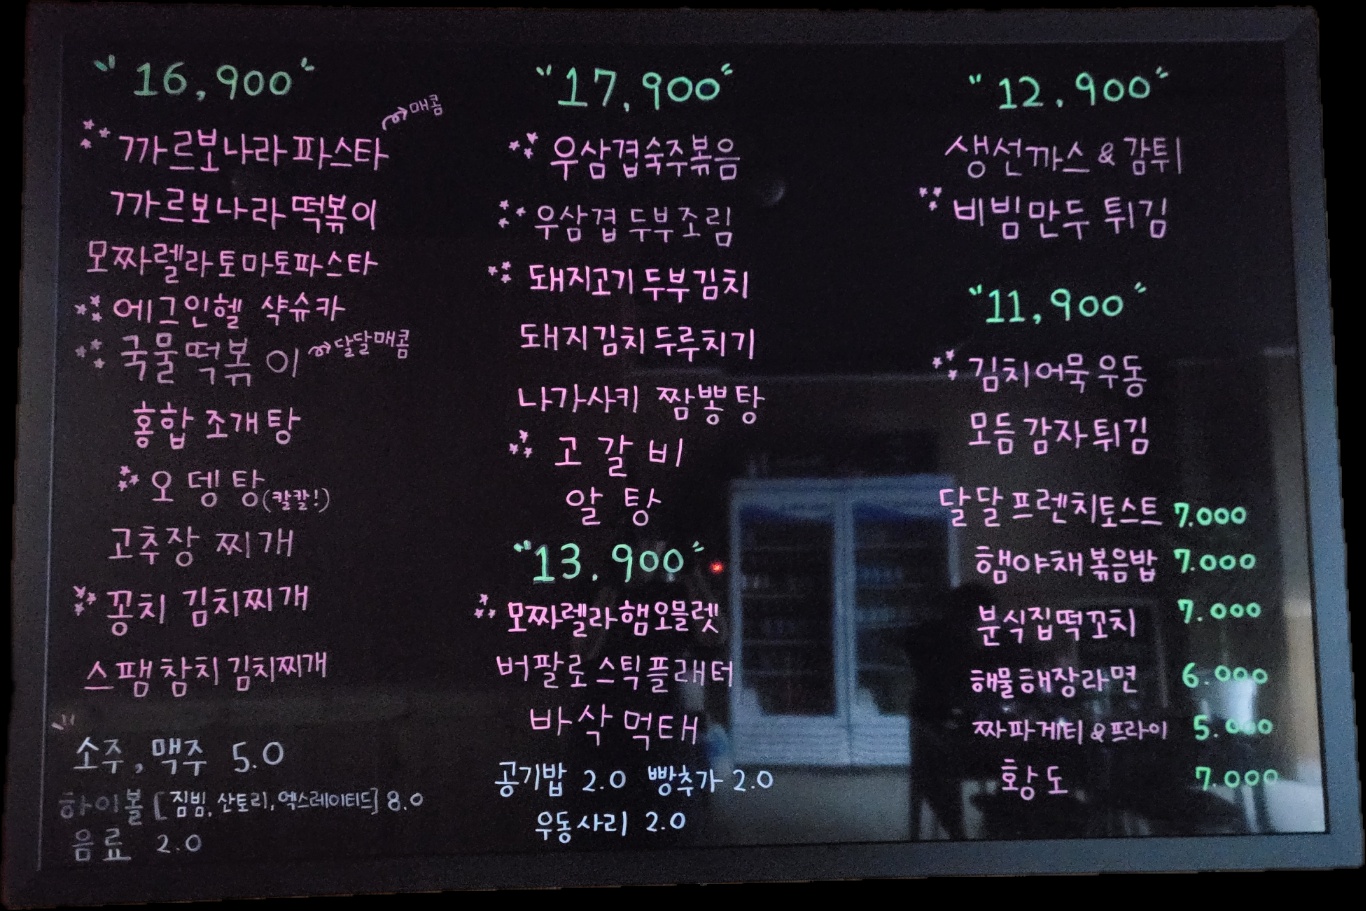 16,900
매콤
까르보나라파스타
까르보나라떡볶이
모짜렐라토마토파스타
에그인헬 샥슈카
국물떡볶이 달달매콤
홍합 조개탕
오뎅탕(칼칼!)
고추장 찌개
꽁치 김치찌개
스팸참치김치찌개
소주, 맥주 5.0
하이볼 [짐빔, 산토리, 엑스레이티드] 8.0
음료 2.0
17,900
우삼겹숙주볶음
우삼겹 두부조림
돼지고기 두부김치
돼지김치두루치기
나가사키 짬뽕탕
고갈비
알탕
13.900
모짜렐라햄오믈렛
버팔로스틱플래터
바삭먹태
공기밥 2.0 빵추가 2.0
우동사리 2.0
12.900
생선까스 & 감튀
비빔만두 튀김
11,900
김치어묵우동
모듬감자튀김
달달프렌치토스트 7.000
햄야채볶음밥 7.000
분식집떡꼬치 7.000
해물해장라면 6.000
짜파게티&프라이 5.000
황도 7.000